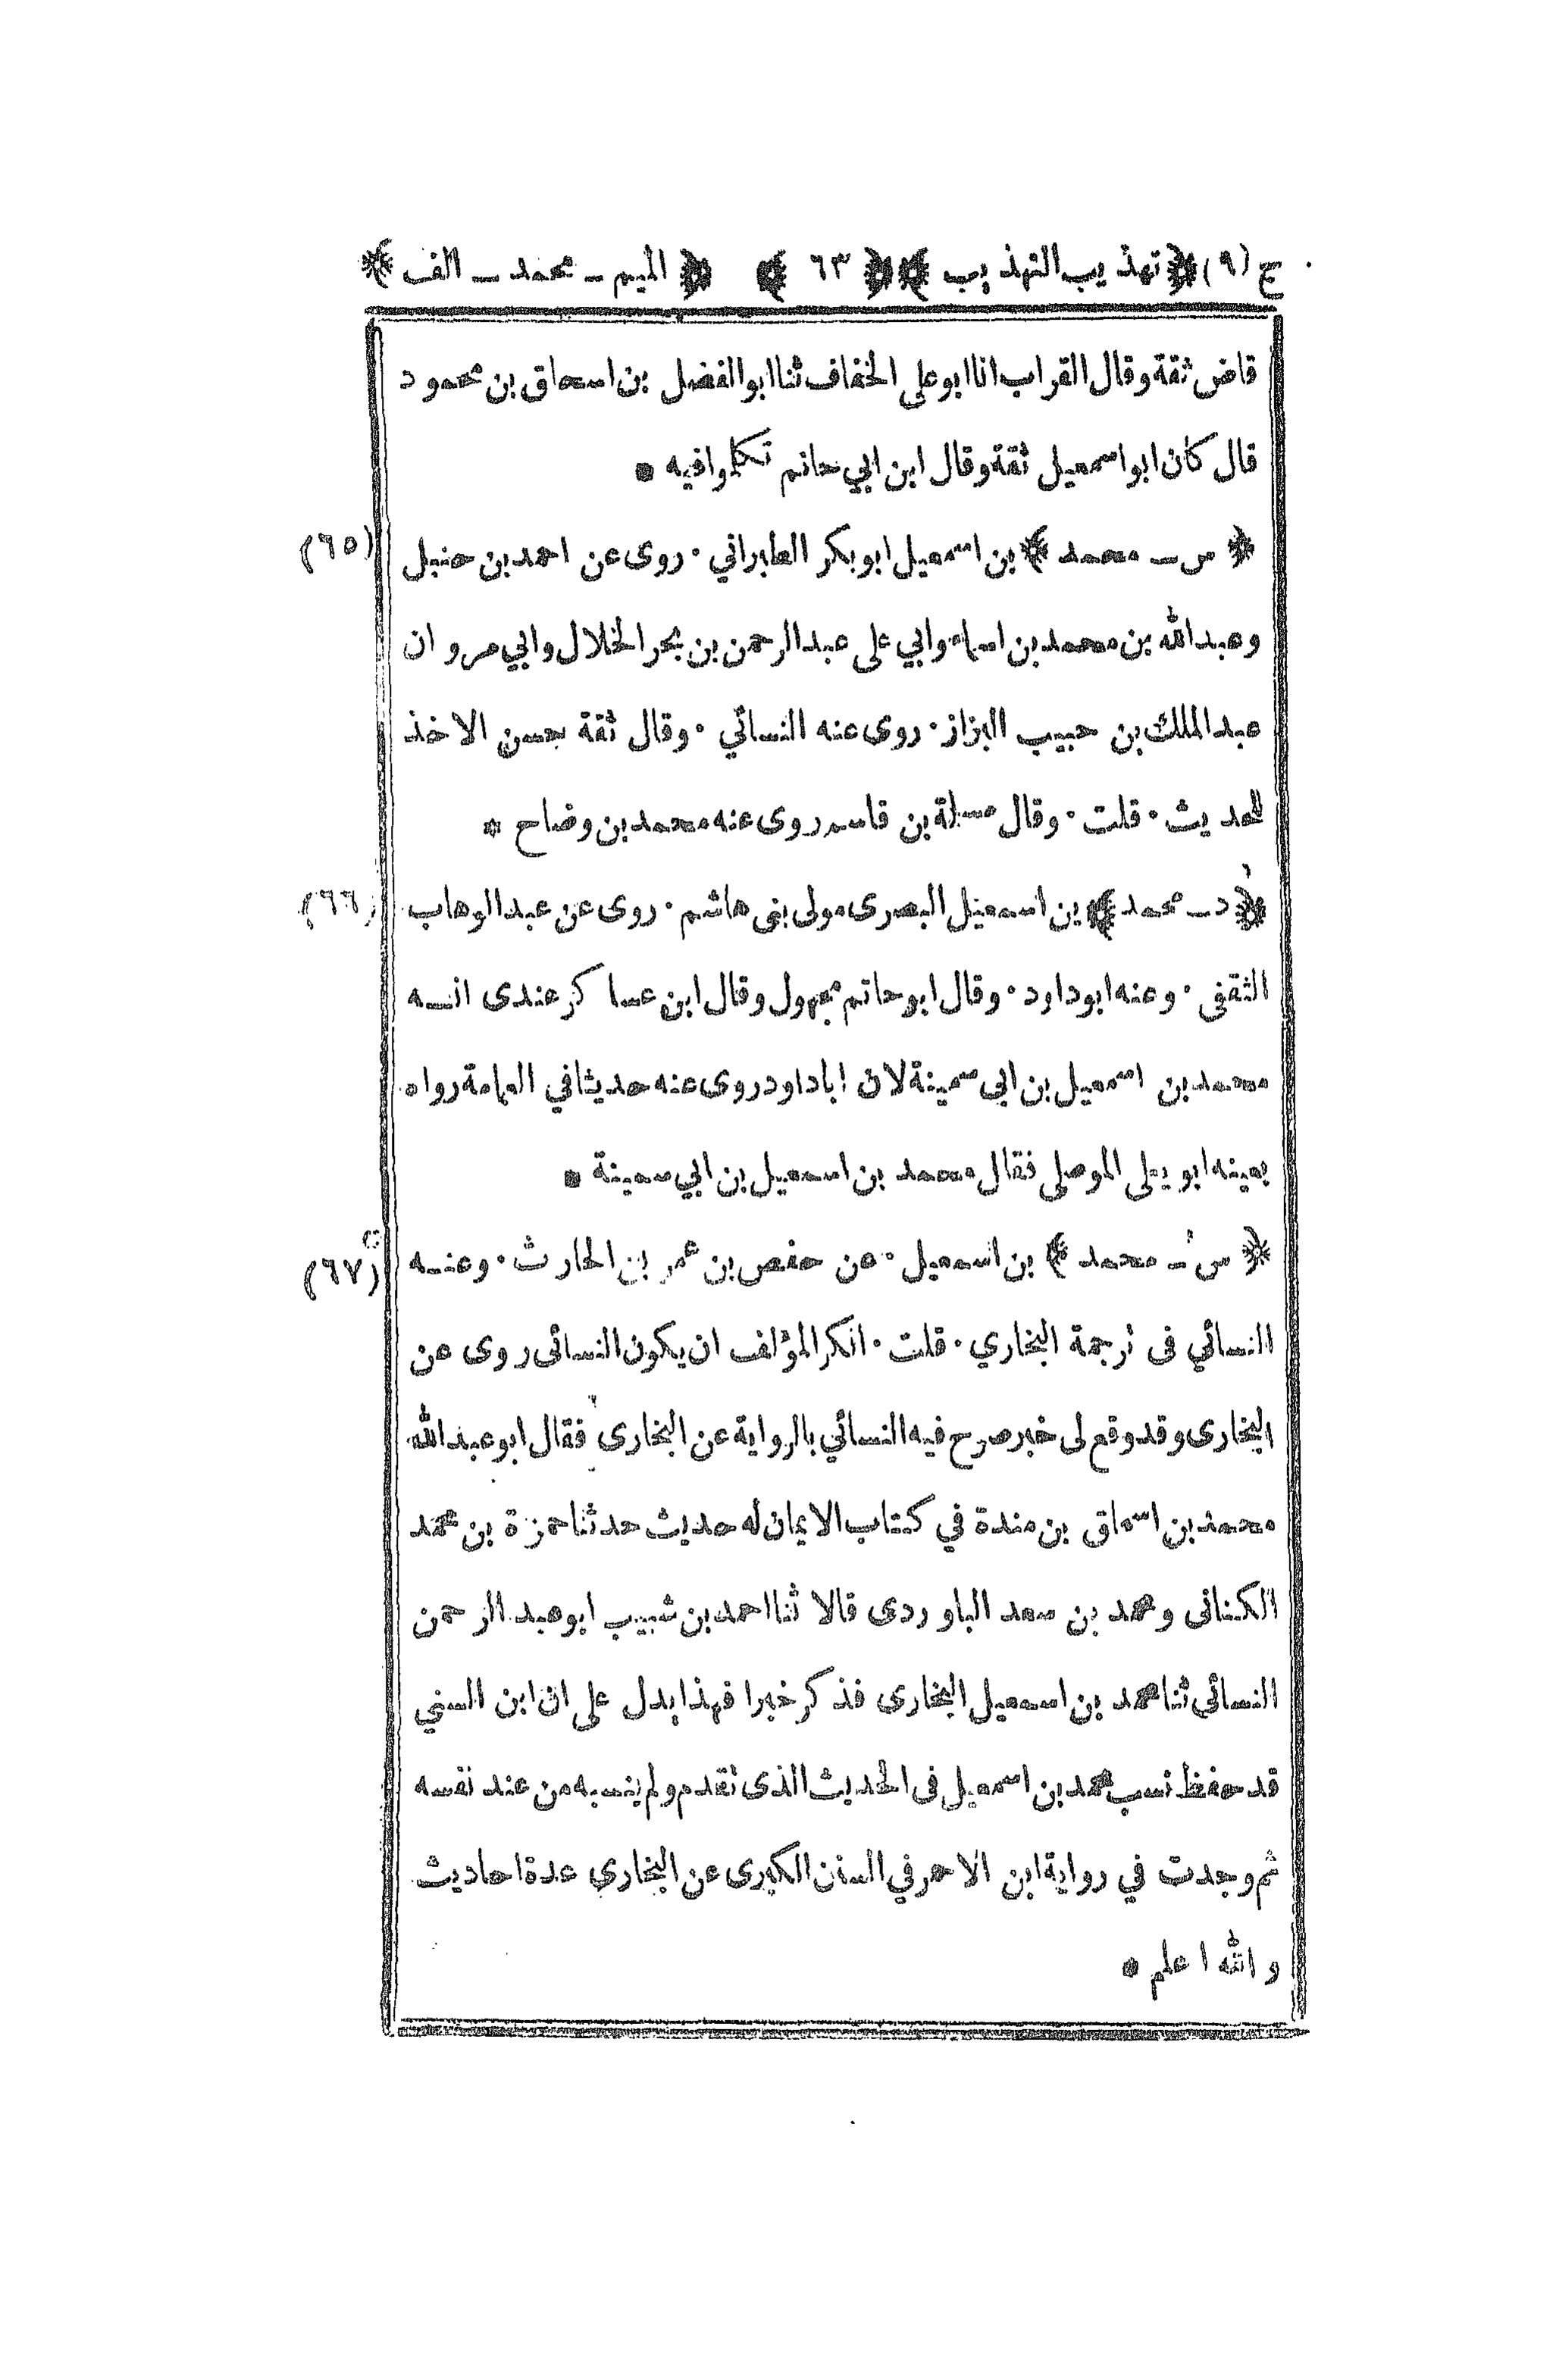 ج (٩) ﴿ تهذيب التهذيب ﴾ ﴿ ٦٣ ﴾ ﴿ الميم ــ محمد ــ الف ﴾
قاض ثقة وقال القراب انا ابو على الخفاف ثنا ابو الفضل بن اسحاق بن محمود
قال كان ابو اسمعيل ثقة وقال ابن ابي حاتم تكلموا فيه *
﴿ س ــ محمد ﴾ بن اسمعيل ابو بكر الطبراني . روى عن احمد بن حنبل (٦٥)
وعبد الله بن محمد بن اسماء وابي على عبد الرحمن بن بحر الخلال وابي مروان
عبد الملك بن حبيب البزاز . روى عنه النسائي . وقال ثقة حسن الاخذ
للحديث . قلت . وقال مسلمة بن قاسم روى عنه محمد بن وضاح *
﴿ د ــ محمد ﴾ بن اسمعيل البصرى مولى بنى هاشم . روى عن عبد الوهاب (٦٦)
الثقفى . وعنه ابو داود . وقال ابو حاتم مجهول وقال ابن عساكر عندى انه
محمد بن اسمعيل بن ابى سمينة لان اباداود روى عنه حديثا في العمامة رواه
بعينه ابو يعلى الموصلى فقال محمد بن اسمعيل بن ابي سمينة *
﴿ س ــ محمد ﴾ بن اسمعيل . عن حفص بن عمر بن الحارث . وعنه (٦٧)
النسائي فى ترجمة البخاري . قلت . انكر المؤلف ان يكون النسائى روى عن
البخارى وقد وقع لى خبر صرح فيه النسائي بالرواية عن البخارى فقال ابو عبد الله
محمد بن اسحاق بن مندة في كتاب الايمان له حديث حدثنا حمزة بن محمد
الكنانى ومحمد بن سعد الباوردى قالا ثنا احمد بن شعيب ابو عبد الرحمن
النسائي ثنا محمد بن اسمعيل البخارى فذكر خبرا فهذا يدل على ان ابن السني
قد حفظ نسب محمد بن اسمعيل فى الحديث الذى تقدم ولم ينسبه من عند نفسه
ثم وجدت في رواية ابن الاحمر في السنن الكبرى عن البخاري عدة احاديث
والله اعلم *